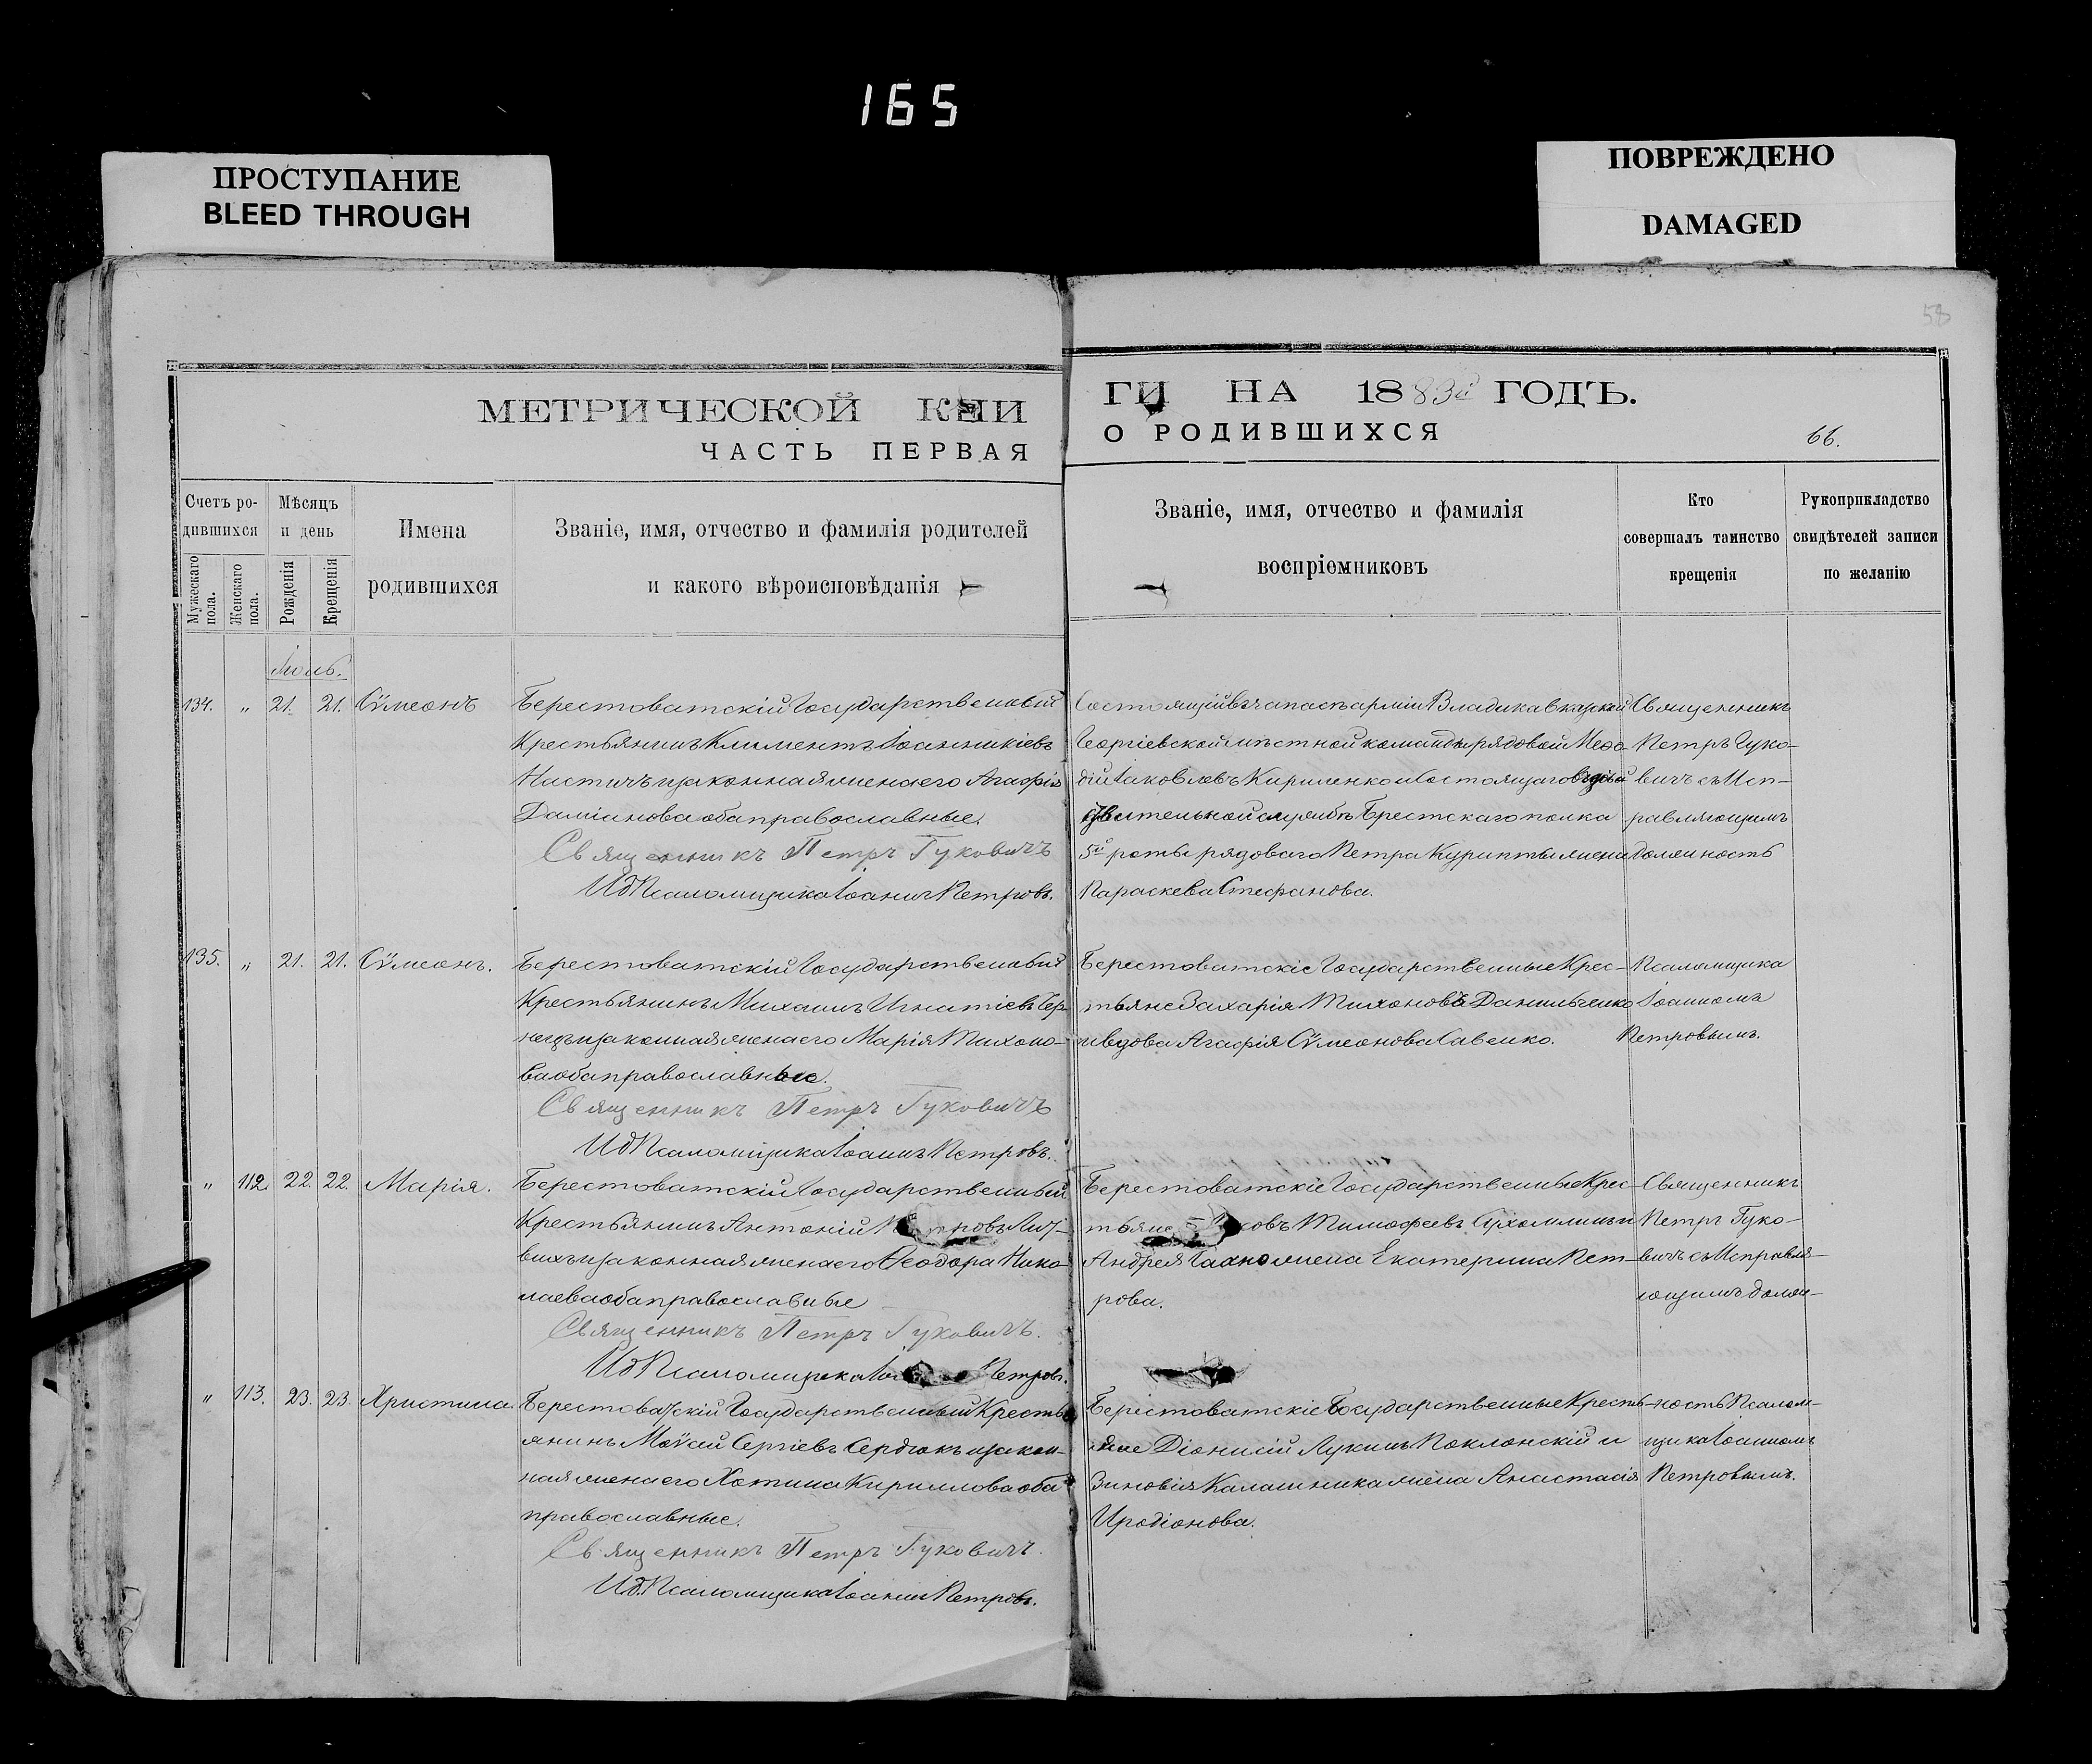 165
ПРОСТУПАНИЕ
BLEED THROUGH
ПОВРЕЖДЕНО
DAMAGED
58
МЕТРИЧЕСКОЙ КНИ
ГИ НА 1883й ГОДЪ.
ЧАСТЬ ПЕРВАЯ
О РОДИВШИХСЯ
66.
Счетъ ро-
дившихся
Мужескаго пола.
Женскаго пола.
Мѣсяцъ
и день
Рожденія
Крещенія
Имена
родившихся
Званіе, имя, отчество и фамилія родителей
и какого вѣроисповѣданія
Званіе, имя, отчество и фамилія
воспріемниковъ
Кто
совершалъ таинство
крещенія
Рукоприкладство
свидѣтелей записи
по желанію
134. " 21. 21. Сѵмеонъ
Берестоватскій Государственный
Крестьянинъ Климентъ Іоанникіевъ
и законная жена его Агафія
Даміанова оба православные.
Священникъ Петръ Гуковичъ
Ид Псаломщика Іоаннъ Петровъ.
Состоящій въ запасѣ арміи Владикавказской
Георгіевской мѣстной команды рядовой Меѳо-
дій Іаковлевъ Кириленко и Состоящаго въ
службѣ Брестскаго полка
5й роты рядоваго Петра жена
Параскева Стефанова.
Священникъ
Петръ Гуко-
вичъ съ Исп-
равляющимъ
должность
135. " 21. 21. Сѵмеонъ.
Берестоватскій Государственный
Крестьянинъ Михаилъ Игнатіевъ Чер-
и законная жена его Марія Тихоно-
ва оба православные.
Священникъ Петръ Гуковичъ
Ид Псаломщика Іоаннъ Петровъ.
Берестоватскіе Государственные Крес-
тьяне Захарія Тихоновъ Данильченко
и вдова Агафія Сѵмеонова Савенко.
Псаломщика
Іоанномъ
Петровымъ.
" 112. 22. 22. Марія.
Берестоватскій Государственный
Крестьянинъ Антоній Лит-
и законная жена его Ѳеодора Нико-
лаева оба православные
Священникъ Петръ Гуковичъ.
Ид Псаломщика Петровъ.
Берестоватскіе Государственные Крес-
тьяне Тимофеевъ и
Андрея жена Екатерина Пет-
рова.
Священникъ
Петръ Гуко-
вичъ съ Исправля-
ющимъ долж-
" 113. 23. 23. Христина.
Берестоватскій Государственный Кресть-
янинъ Моѵсей Сергіевъ Сердюкъ и закон-
ная жена его Хотина Кириллова оба
православные.
Священникъ Петръ Гуковичъ.
Ид. Псаломщика Іоаннъ Петровъ.
Берестоватскіе Государственные Кресть-
яне Діонисій Лукинъ Поклонскій и
Зиновія Калашника жена Анастасія
Иродіонова.
ность Псалом-
щика Іоанномъ
Петровымъ.